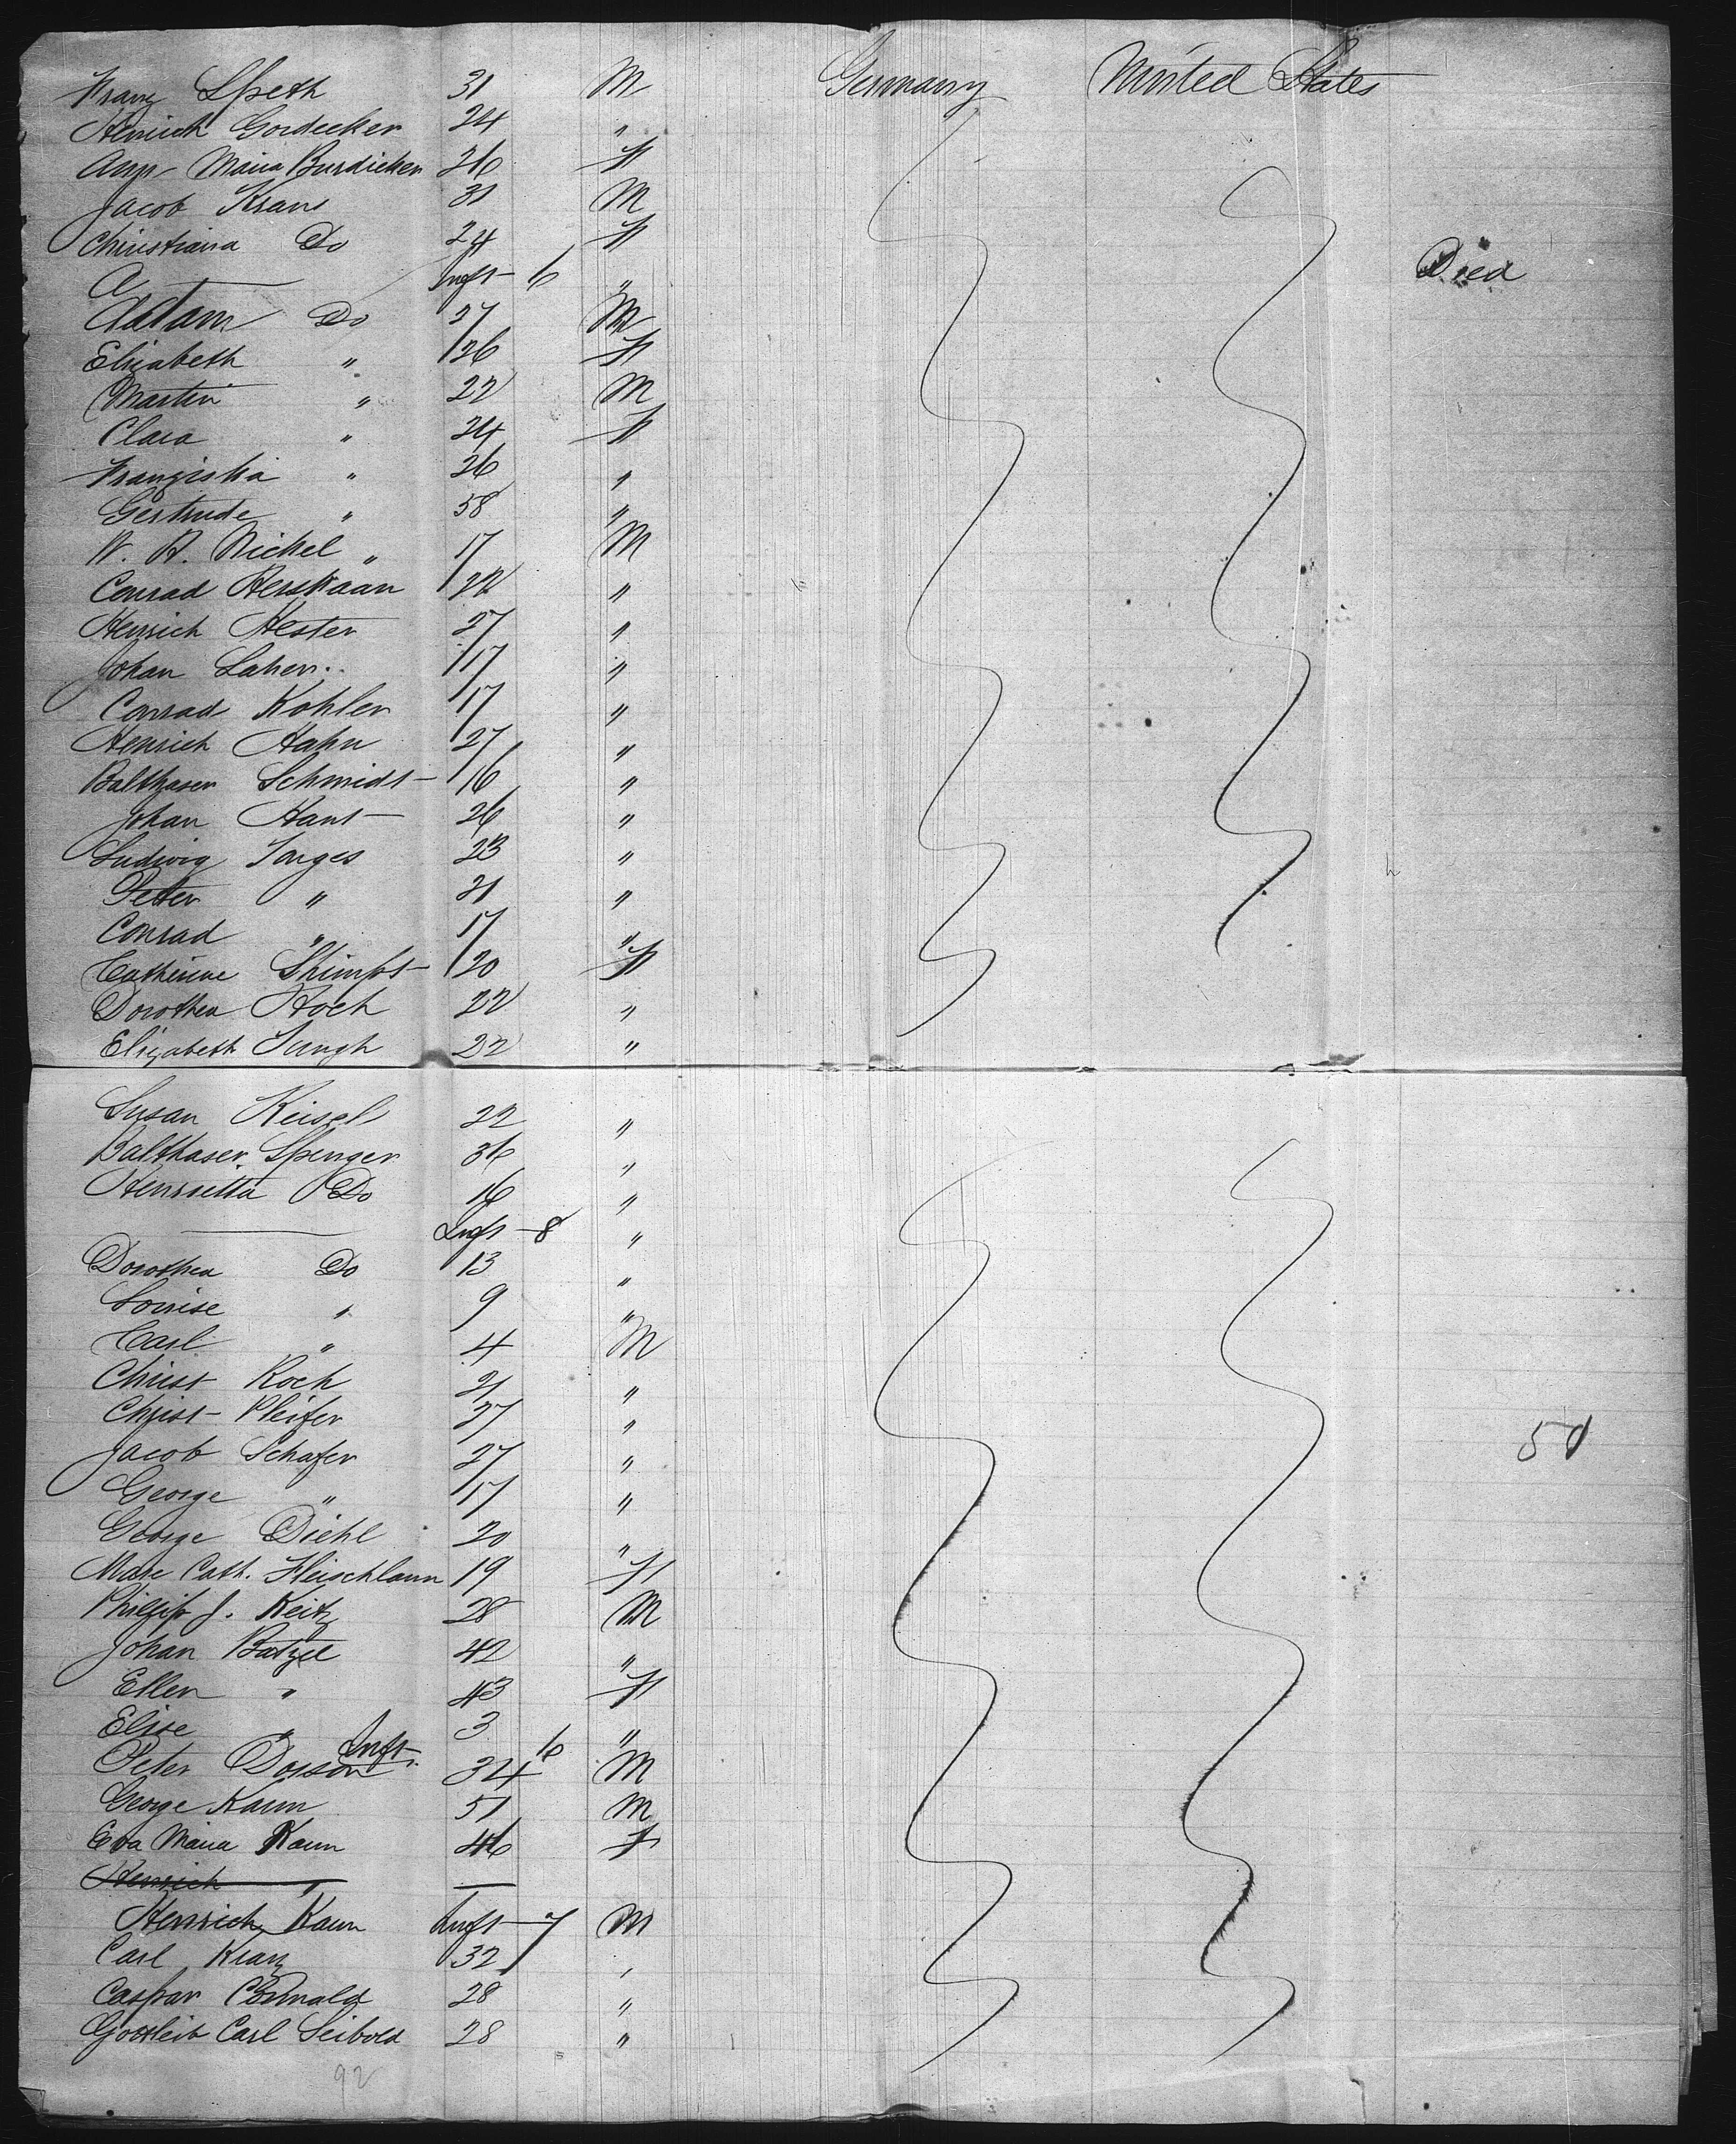 Franz Speth 31 M Germany United States
Heinrich Gordecker 24 "
Ann Maria Burdicker 26 F
Jacob Krans 31 M
Christiana Do 24 F
A Inft - 6 " Died
Adam Do 27 M
Elizabeth " 26 F
Martin " 22 M
Clara " 24 F
Franziska " 26 "
Gertrude " 58 "
W. H. Nickel " 17 M
Conrad 22 "
Henrich Hester 27 "
Johan Laher 17 "
Conrad Kohler 17 "
Henrich Hahn 27 "
Balthaser Schmidt 16 "
Johan Hant 26 "
Ludwig Jorges 23 "
Peter " 21 "
Conrad " 17 "
Catherine Shimpt 20 F
Dorothea Hoch 22 "
Elizabeth Jungh 22 "
Susan Keisel 22 "
Balthaser Spenger 36 "
Henrietta Do 16 "
Inft - 8 "
Dorothea Do 13 "
Louise " 9 "
Carl " 4 M
Christ Koch 21 "
Christ Pleifer 27 "
Jacob Schafer 27 "
George " 17 "
George Diehl 20 "
Marc Cath. Fleischlann 19 F
Philip J. Keitz 28 M
Johan Batzel 42 "
Ellen " 43 F
Elise " 3 "
Inft 6
Peter Dorson 34 M
George Kaun 51 M
Eva Maria Kaun 46 F
Henrich " —
Henrich Kaun Inft - 7 M
Carl Kranz 32 "
Caspar 28 "
Gottleib Carl Seibold 28 "
51
92